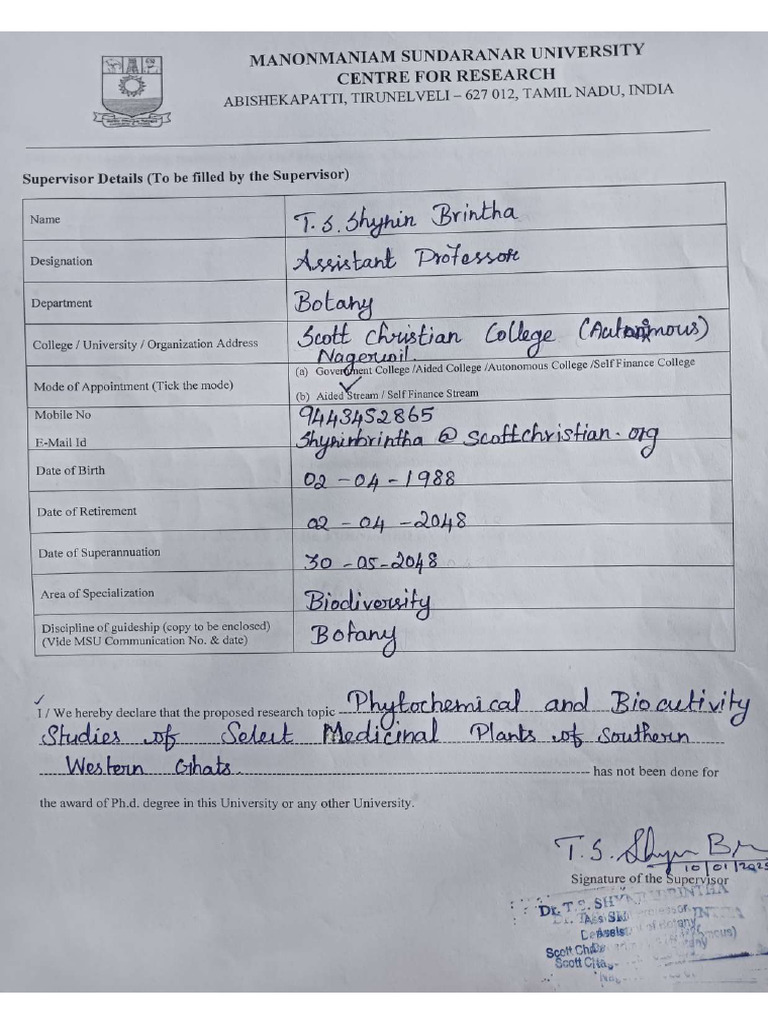 MANONMANIAM SUNDARANAR UNIVERSITY
CENTRE FOR RESEARCH
ABISHEKAPATTI, TIRUNELVELI – 627 012, TAMIL NADU, INDIA
Supervisor Details (To be filled by the Supervisor)
Name T. S. Shynin Brintha
Designation Assistant Professor
Department Botany
College / University / Organization Address Scott Christian College (Autonomous)
Nagercoil.
Mode of Appointment (Tick the mode) (a) Government College /Aided College /Autonomous College /Self Finance College
(b) Aided Stream / Self Finance Stream
Mobile No 9443452865
E-Mail Id Shyninbrintha @ scottchristian.org
Date of Birth 02 - 04 - 1988
Date of Retirement 02 - 04 - 2048
Date of Superannuation 30 - 05 - 2048
Area of Specialization Biodiversity
Discipline of guideship (copy to be enclosed) Botany
(Vide MSU Communication No. & date)
I / We hereby declare that the proposed research topic Phytochemical and Bioactivity
Studies of Select Medicinal Plants of Southern
Western Ghats. has not been done for
the award of Ph.d. degree in this University or any other University.
T. S. Shyn
10/01/2025
Signature of the Supervisor
Dr. T. S.
Scott